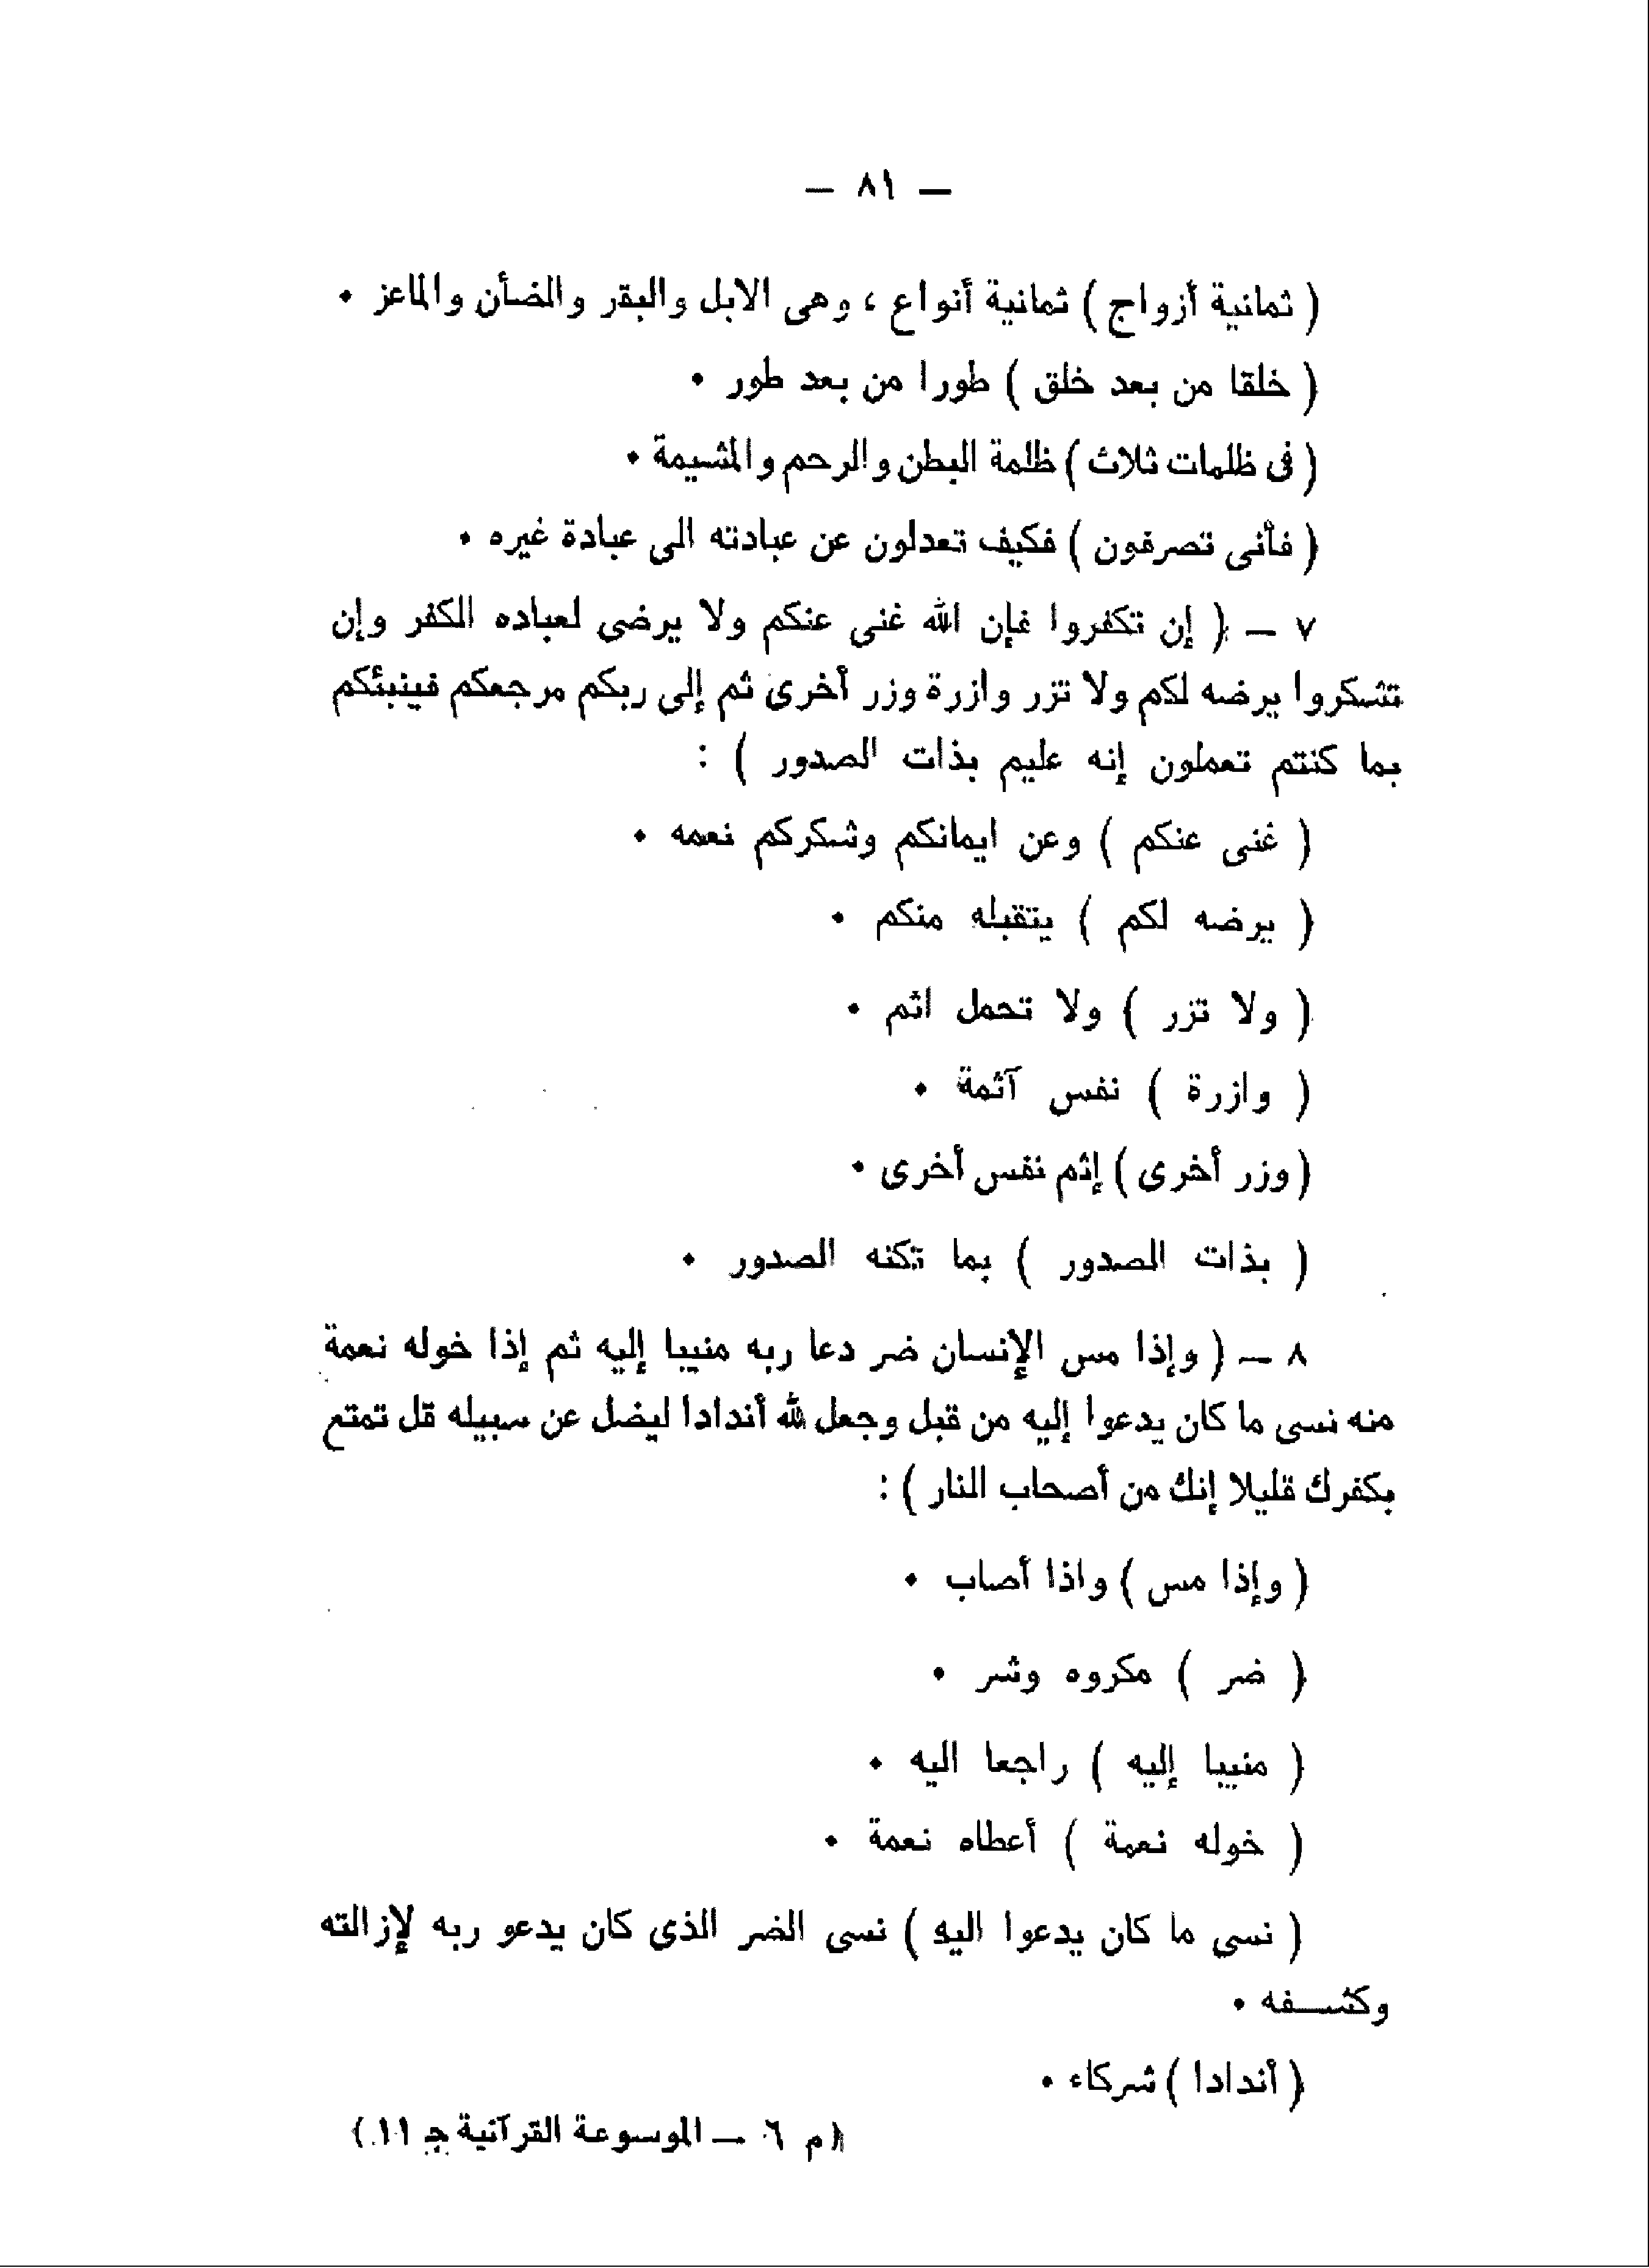 — ٨١ —
( ثمانية أزواج ) ثمانية أنواع ، وهى الابل والبقر والضأن والماعز .
( خلقا من بعد خلق ) طورا من بعد طور .
( فى ظلمات ثلاث ) ظلمة البطن والرحم والمشيمة .
( فأنى تصرفون ) فكيف تعدلون عن عبادته الى عبادة غيره .
٧ — ( إن تكفروا فإن الله غنى عنكم ولا يرضى لعباده الكفر وإن
تشكروا يرضه لكم ولا تزر وازرة وزر أخرى ثم إلى ربكم مرجعكم فينبئكم
بما كنتم تعملون إنه عليم بذات الصدور ) :
( غنى عنكم ) وعن ايمانكم وشكركم نعمه .
( يرضه لكم ) يتقبله منكم .
( ولا تزر ) ولا تحمل اثم .
( وازرة ) نفس آثمة .
( وزر أخرى ) إثم نفس أخرى .
( بذات الصدور ) بما تكنه الصدور .
٨ — ( وإذا مس الإنسان ضر دعا ربه منيبا إليه ثم إذا خوله نعمة
منه نسى ما كان يدعوا إليه من قبل وجعل لله أندادا ليضل عن سبيله قل تمتع
بكفرك قليلا إنك من أصحاب النار ) :
( وإذا مس ) واذا أصاب .
( ضر ) مكروه وشر .
( منيبا إليه ) راجعا اليه .
( خوله نعمة ) أعطاه نعمة .
( نسى ما كان يدعوا اليه ) نسى الضر الذى كان يدعو ربه لإزالته
وكشـــفه .
( أندادا ) شركاء .
( م ٦ — الموسوعة القرآنية جـ ١١ )